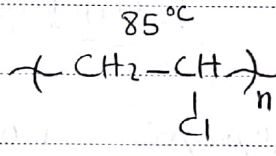 85°C
( CH2-CH )n
Cl